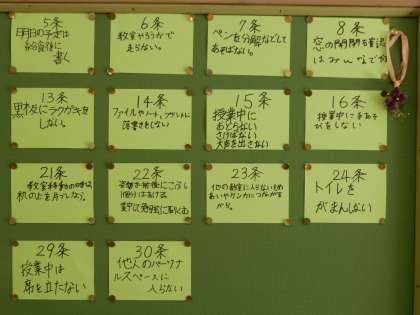 5条
明日の予定は
給食後に
書く
6条
教室やろうかで
走らない。
7条
ペンを分解などして
あそばない。
8条
窓の開閉確認
はみんなで
13条
黒板にラクガキを
しない。
14条
ファイルやノート、プリントに
落書きをしない
15条
授業中に
おどらない
さけばない
大声を出さない
16条
授業中に手あそ
びをしない
21条
教室移動の時は
机の上を片づけよう。
22条
22条
23条
他の教室に入らない
ケンカにつながる
から。
24条
トイレを
がまんしない
29条
授業中は
席を立たない
30条
他人のパーソナ
ルスペースに
入らない